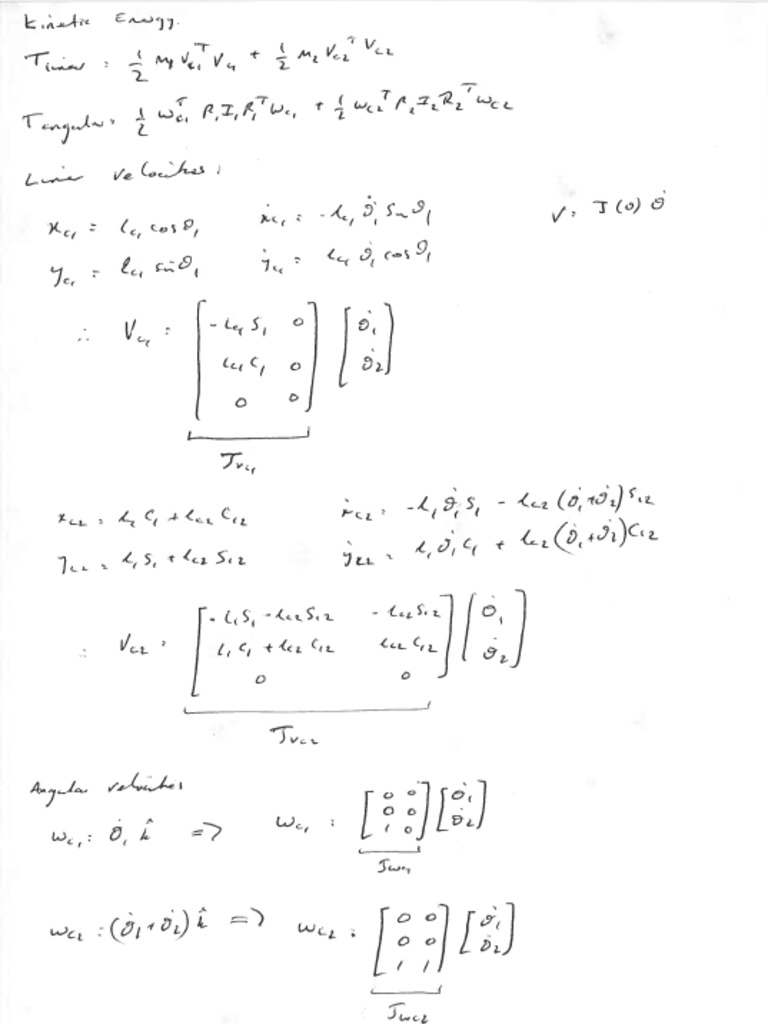 Kinetic Energy.
T_linear = 1/2 m_1 V_c1^T V_c1 + 1/2 m_2 V_c2^T V_c2
T_angular = 1/2 ω_c1^T R_1 I_1 R_1^T ω_c1 + 1/2 ω_c2^T R_2 I_2 R_2^T ω_c2
Linear velocities:
x_c1 = l_c1 cosθ_1   ẋ_c1 = -l_c1 θ̇_1 Sinθ_1   V = J(θ) θ̇
y_c1 = l_c1 sinθ_1   ẏ_c1 = l_c1 θ̇_1 cosθ_1
∴ V_c1 = [-l_c1 S_1  0; l_c1 C_1  0; 0  0] [θ̇_1; θ̇_2]
J_vc1
x_c2 = l_1 C_1 + l_c2 C_12   ẋ_c2 = -l_1 θ̇_1 S_1 - l_c2 (θ̇_1+θ̇_2) S_12
y_c2 = l_1 S_1 + l_c2 S_12   ẏ_c2 = l_1 θ̇_1 C_1 + l_c2 (θ̇_1+θ̇_2) C_12
∴ V_c2 = [-l_1 S_1 - l_c2 S_12  -l_c2 S_12; l_1 C_1 + l_c2 C_12  l_c2 C_12; 0  0] [θ̇_1; θ̇_2]
J_vc2
Angular velocities
ω_c1 = θ̇_1 k̂ => ω_c1 = [0 0; 0 0; 1 0] [θ̇_1; θ̇_2]
J_ωc1
ω_c2 = (θ̇_1+θ̇_2) k̂ => ω_c2 = [0 0; 0 0; 1 1] [θ̇_1; θ̇_2]
J_ωc2